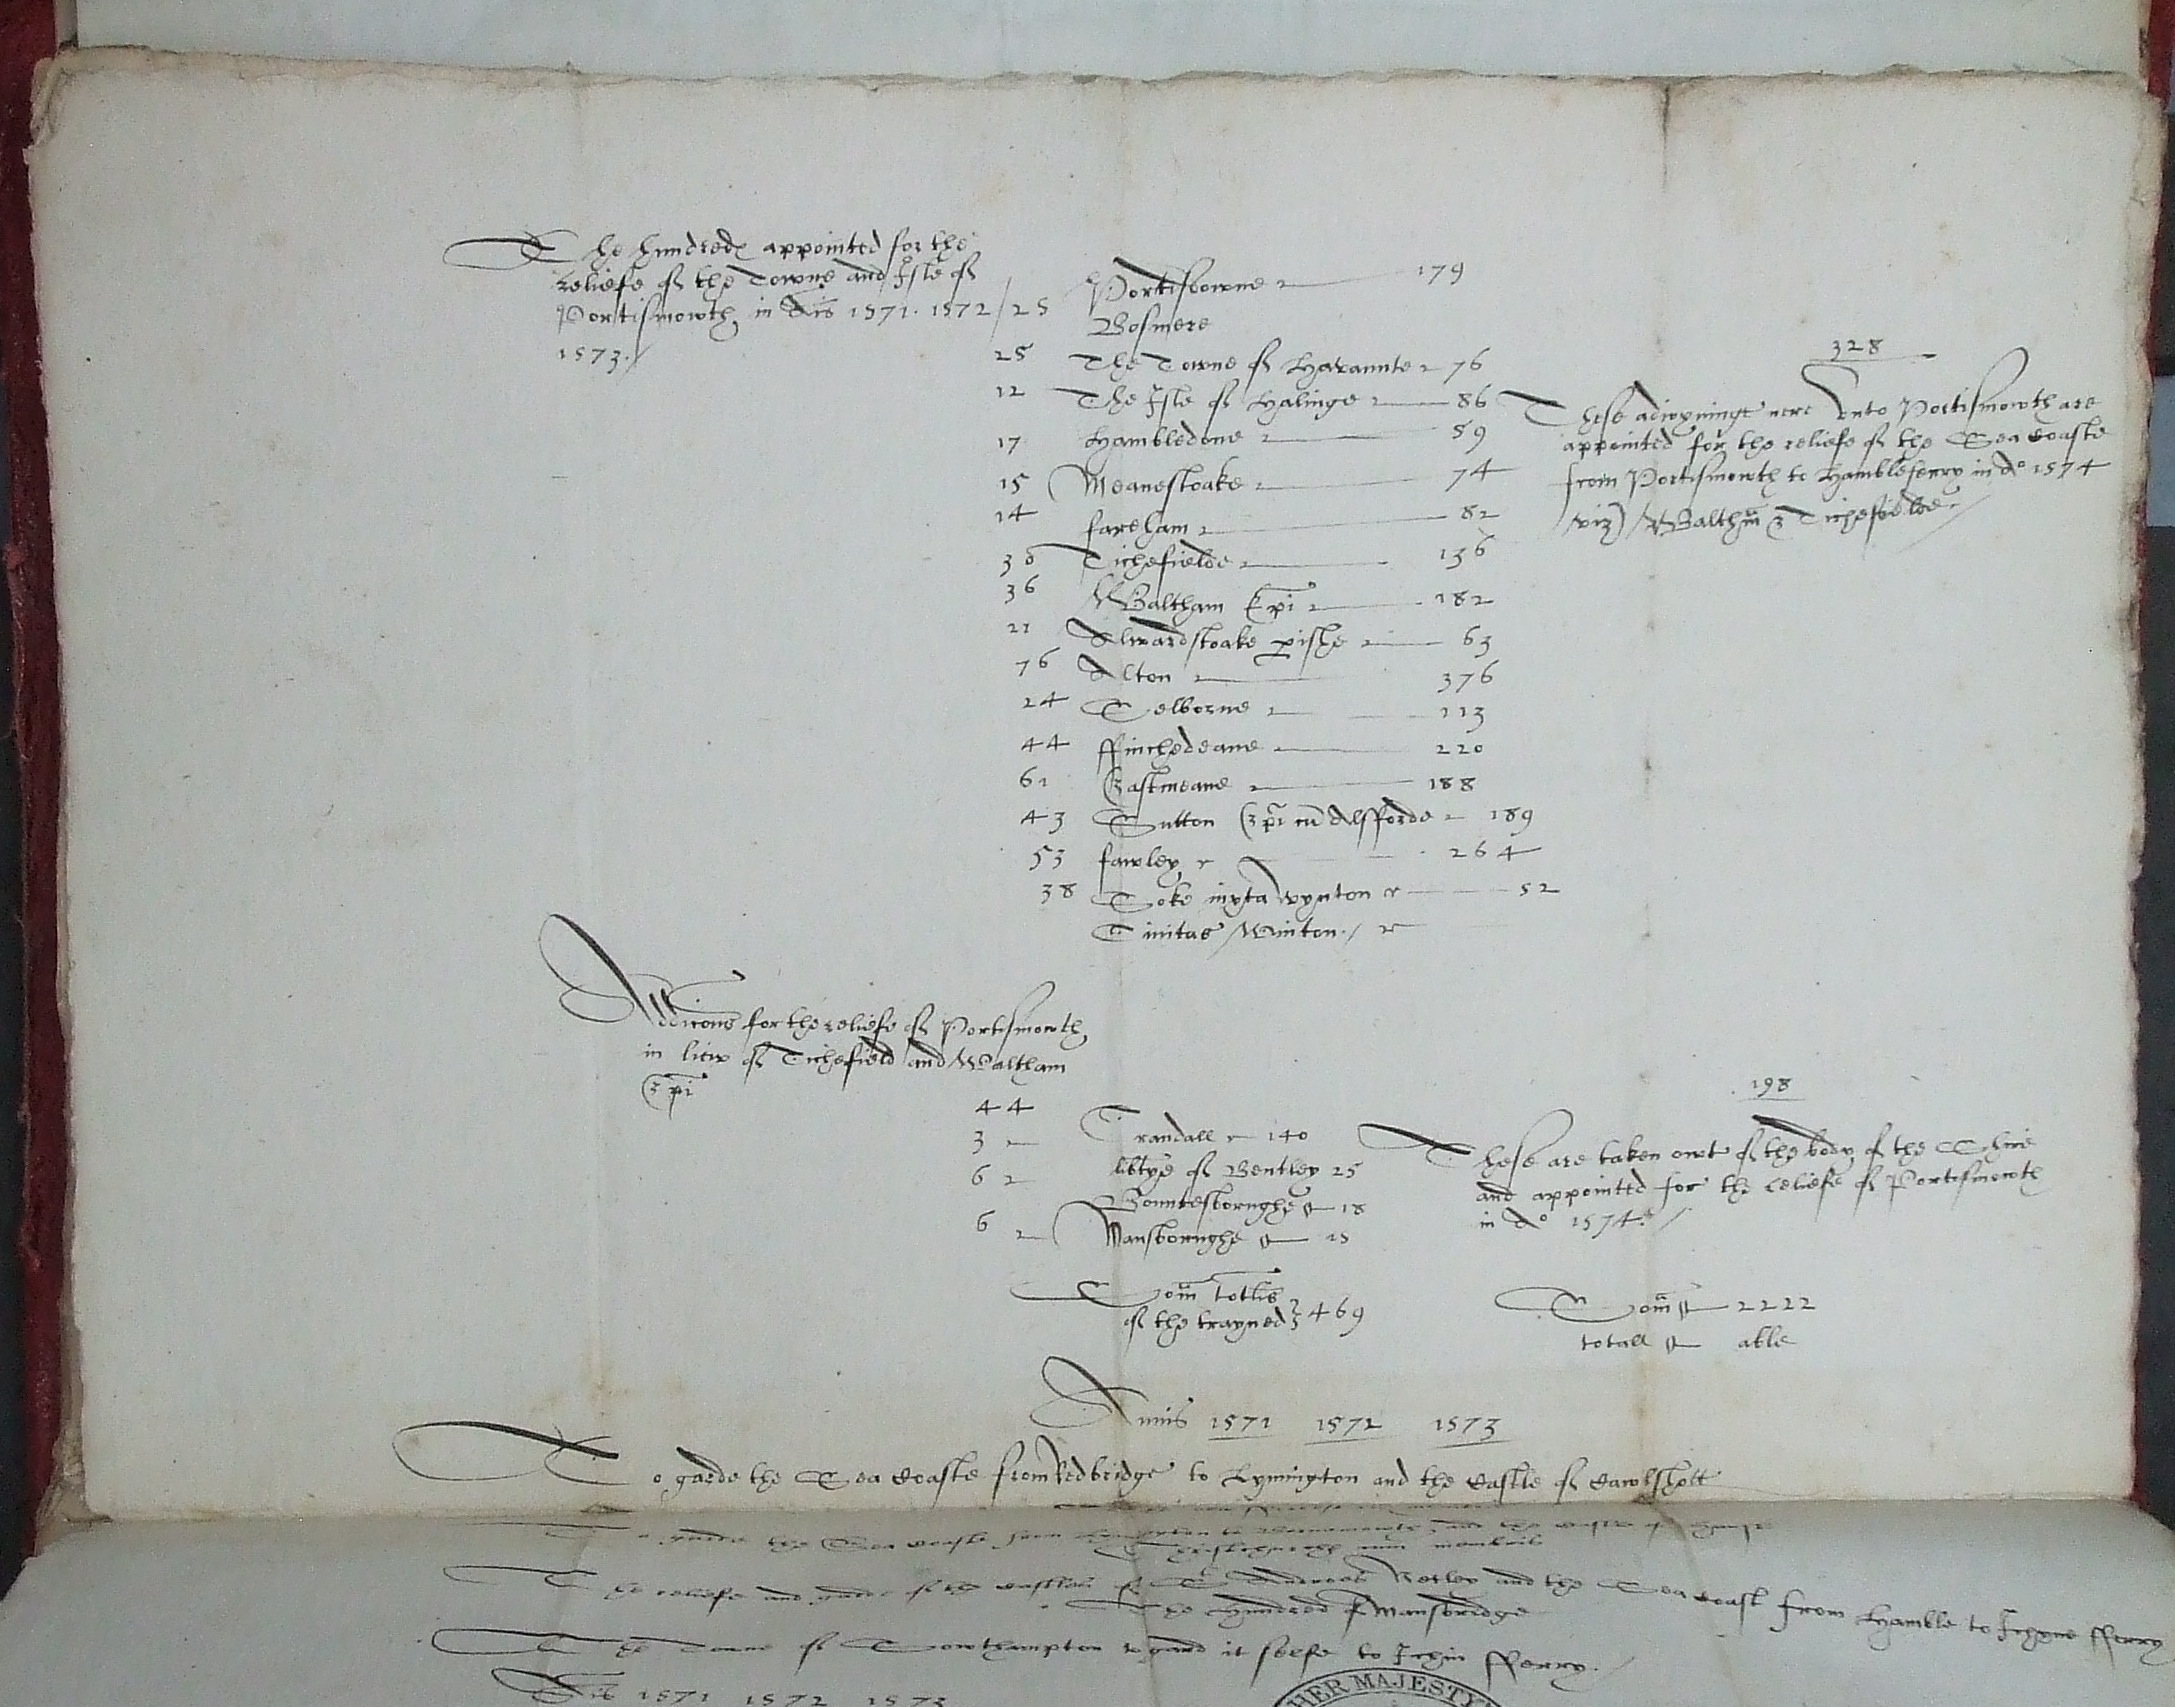 The hundreds appointed for the
reliefe of the Towne and Isle of
Portismowth in Ais 1571. 1572 / 25
1573./
Portisdowne 179
Bosmere
25 The Towne of Havannte 76
12 The Isle of Halinge 86
17 Hambledone 59
15 Meanestoake 74
14 fareham 82
36 Tichefielde 136
36 Waltham Epi 182
21 Alwardstoake pishe 63
76 Alton 376
24 Selborne 113
44 ffinchedeane 220
61 Eastmeane 188
43 Sutton Epi cu Alsfforde 189
53 fawley 264
38 Soke iuxta wynton 52
Civitas Winton./
328
These adioyninge nere unto Portismowth are
appointed for the reliefe of the Sea coaste
from Portismowth to Hambleferry in Ao 1574
viz) Walthm & Tichefielde./
Addicons for the reliefe of Portismowth
in liew of Tichefield and Waltham
Epi
44 Crandall 140
3 libtye of Bentley 25
6 Bountesborughe 18
6 Mansborughe 15
198
These are taken owt of the body of the Shire
and appointed for the reliefe of Portismowth
in Ao 1574./
Som totlis
of the trayned } 469
Som 2222
totall able
Annis 1571 1572 1573
To garde the Sea coaste from Redbridge to Lymington and the castle of Cawlshott
To garde the Sea coaste from to and the castle of
Christchurch cum membris
The reliefe and garde of the castles of St Andrees Netley and the Sea coast from Hamble to Ichyne fferry
The Hundred of Mansbridge
The Towne of Sowthampton to gard it selfe to Ichin fferry./
Ais 1571 1572 1573
HER MAJESTY'